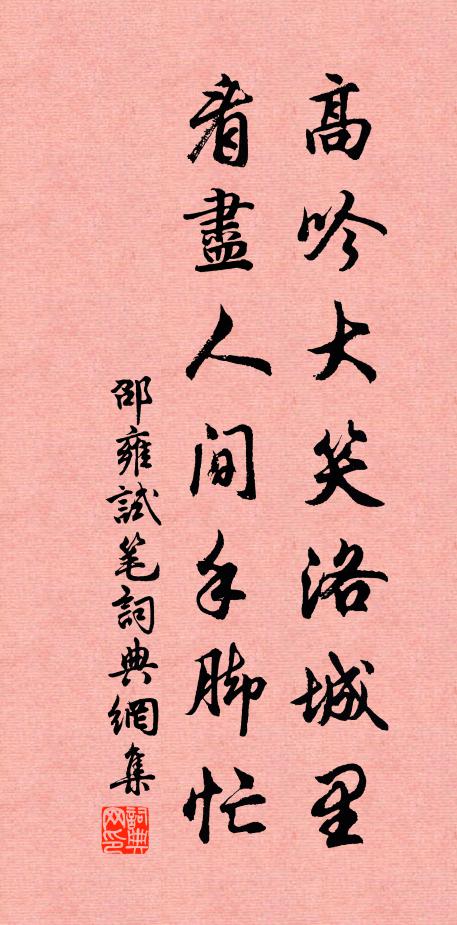 高吟大笑洛城里
看盡人间手脚忙
邵雍試笔詞典網集
詞典网印